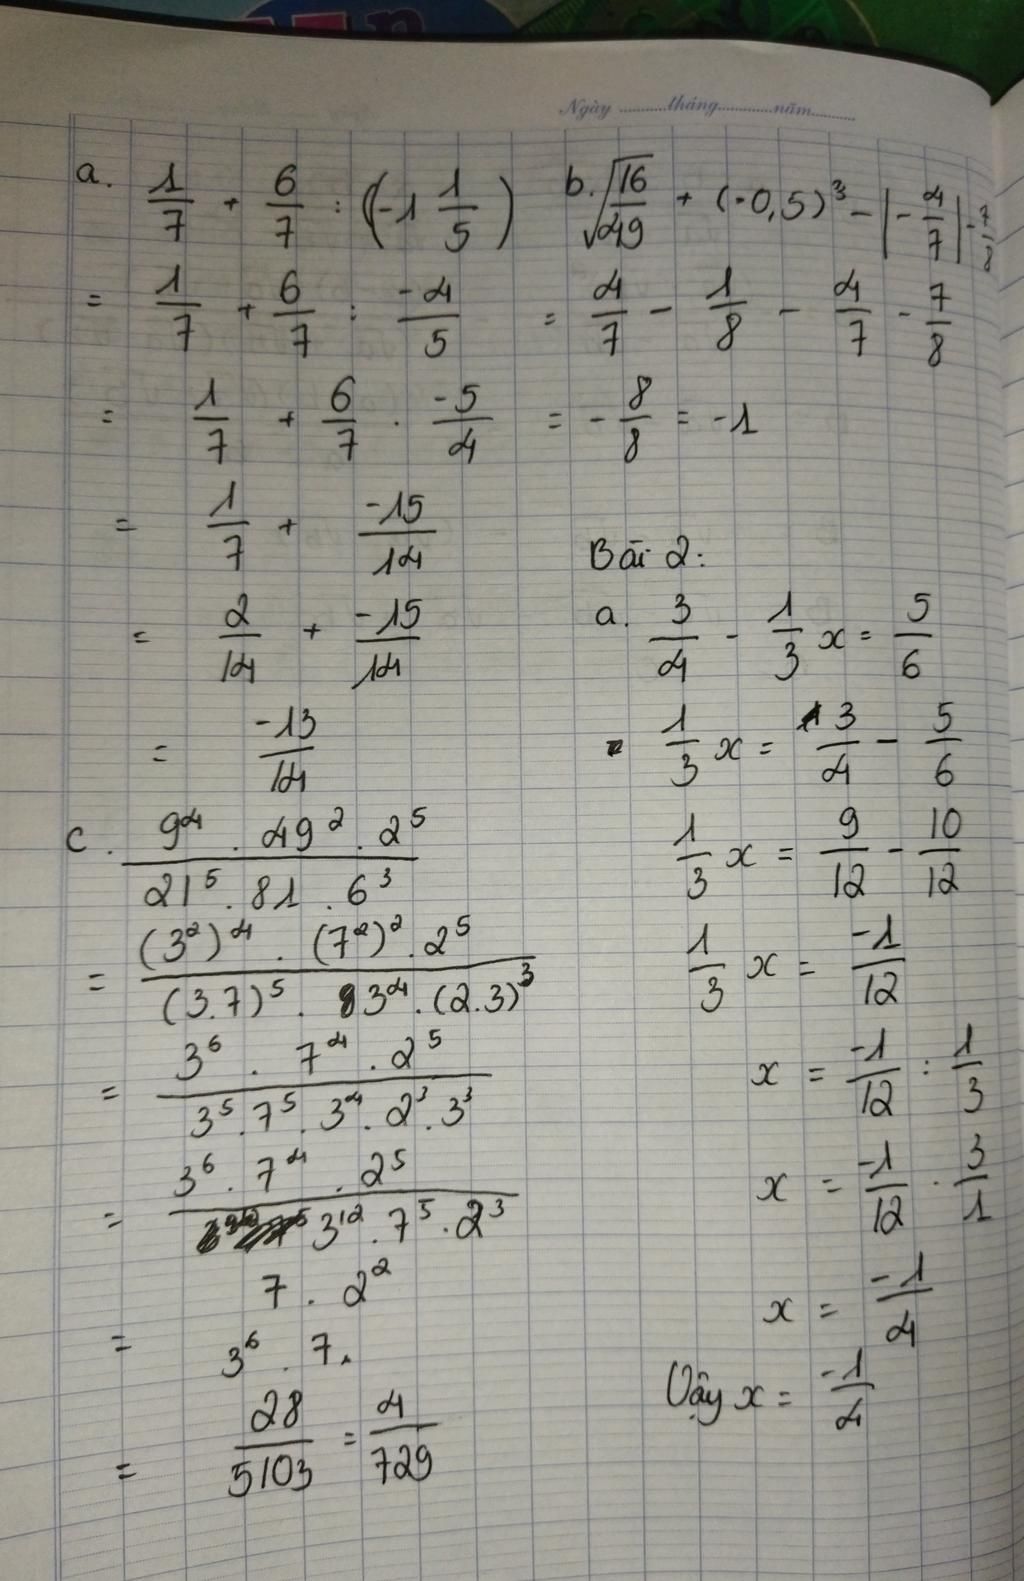 Ngày ..........tháng..........năm..........
a. 1/7 + 6/7 : (-1 1/5)
= 1/7 + 6/7 : -4/5
= 1/7 + 6/7 . -5/4
= 1/7 + -15/14
= 2/14 + -15/14
= -13/14
b. √16/√49 + (-0,5)³ - |-4/7| - 7/8
= 4/7 - 1/8 - 4/7 - 7/8
= -8/8 = -1
c. 9⁴ . 49² . 2⁵ / 21⁵ . 81 . 6³
= (3²)⁴ . (7²)² . 2⁵ / (3.7)⁵ . 3⁴ . (2.3)³
= 3⁶ . 7⁴ . 2⁵ / 3⁵ . 7⁵ . 3⁴ . 2³ . 3³
= 3⁶ . 7⁴ . 2⁵ / 3¹² . 7⁵ . 2³
= 7 . 2² / 3⁶ . 7.
= 28/5103 = 4/729
Bài 2:
a. 3/4 - 1/3 x = 5/6
1/3 x = 3/4 - 5/6
1/3 x = 9/12 - 10/12
1/3 x = -1/12
x = -1/12 : 1/3
x = -1/12 . 3/1
x = -1/4
Vậy x = -1/4